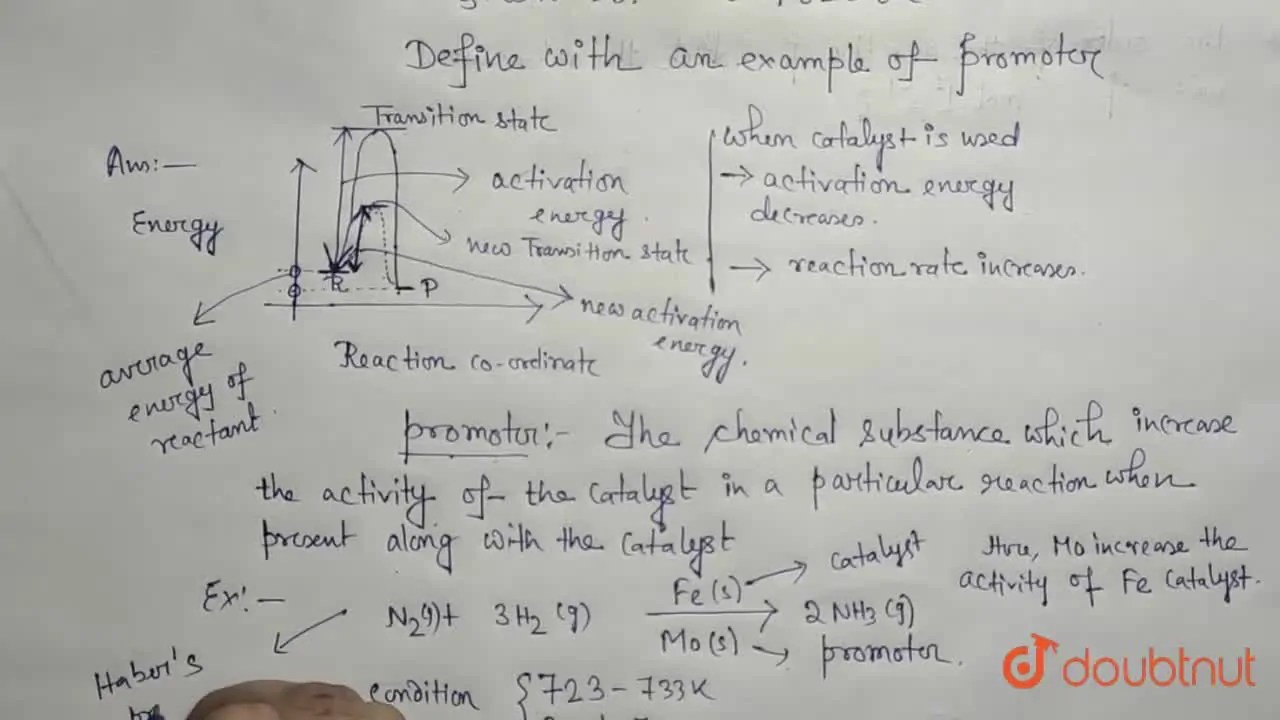 Define with an example of promoter
Ans:—
Energy
Transition state
activation
energy.
new Transition state
R
P
new activation
energy.
average
energy of
reactant
Reaction co-ordinate
when catalyst is used
→ activation energy
decreases.
→ reaction rate increases.
promoter:- The chemical substance which increase
the activity of the catalyst in a particular reaction when
present along with the catalyst
Ex:—
N2(g)+ 3H2(g) Fe(s) → 2NH3(g)
Mo(s)
catalyst
promoter.
Here, Mo increase the
activity of Fe catalyst.
Haber's
condition { 723-733K
doubtnut